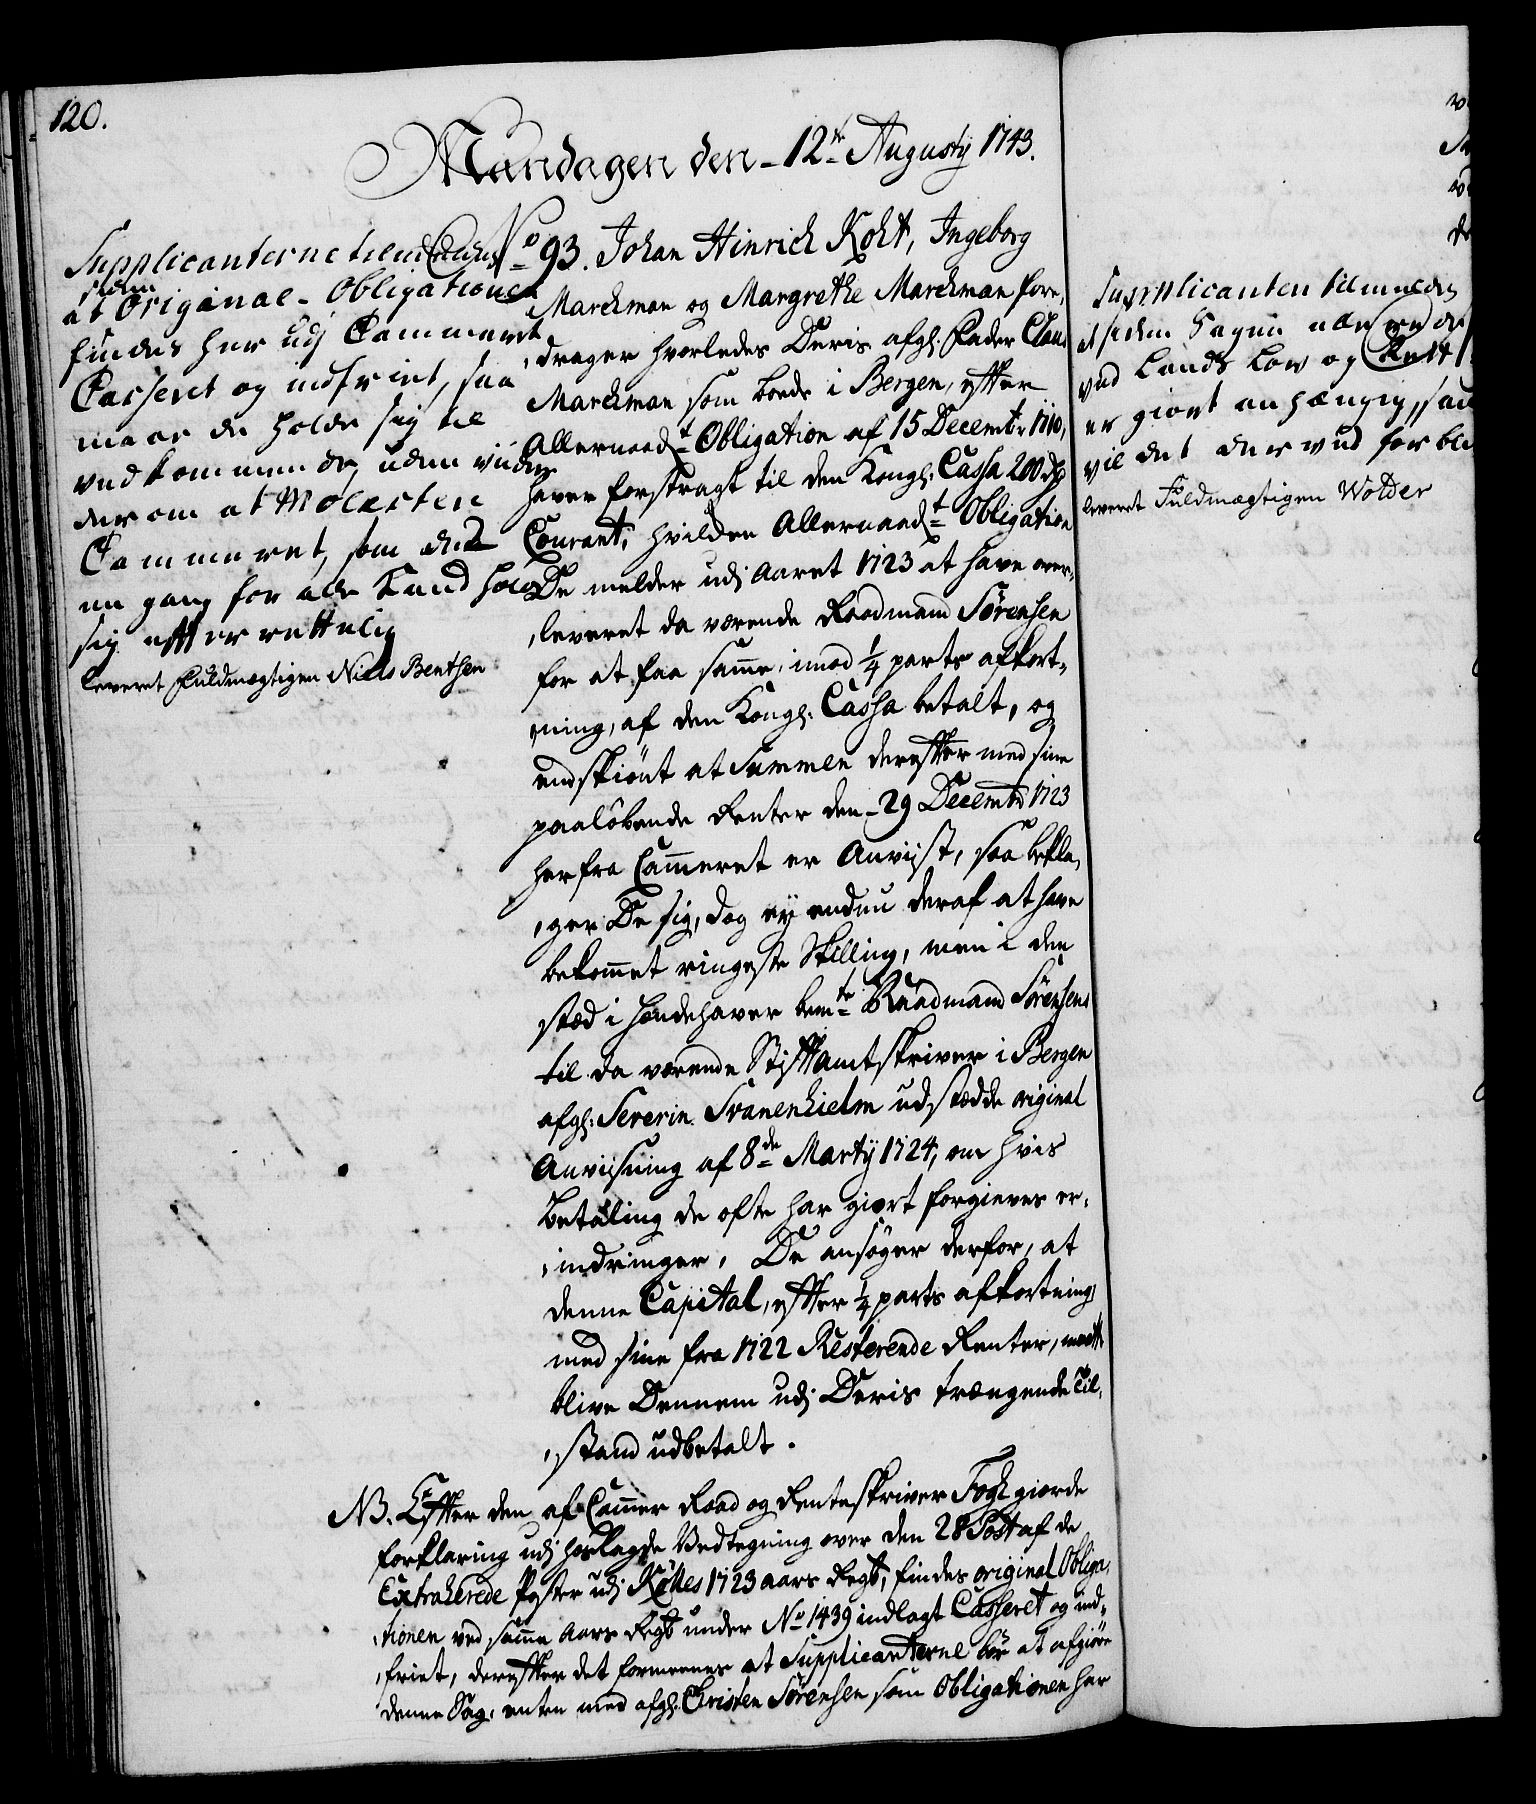 120.
Mandagen den 12te Augustij 1743.
Supplicanterne tilmeldes,
siden
at Original-Obligationen
findes her udj Cammeret
Casseret og indfriet, saa
maae de holde sig til
vedkommende, uden viidere
derom at Molestere
Cammeret, som de
en gang for alle kand holde
sig efterrettelig
leveret Fuldmægtigen Niels Bentsen
No 93. Johan Hinrich Koht, Ingeborg
Marckman og Margrethe Marckman fore,
,drager hvorledes Deris afg: Fader Claus
Marckman som boede i Bergen, efter
Allernaadt Obligation af 15 Decembr 1710,
haver forstragt til den Kongl: Cassa 200 Rdr
Courant, hvilden Allernaadt Obligation
De melder udj Aaret 1723 at have over,
,leveret da værende Raadmand Sørensen
for at faa samme, imod 1/4 parts afkort,
,ning, af den Kongl: Cassa betalt, og
endskiønt at Summen derefter med sine
paaløbende Renter den 29 Decembr 1723
herfra Cammeret er Anviist, saa bekla,
,ger De sig, dog ey endnu deraf at have
bekommet ringeste Skilling, men i den
stæd i hændehaver bemte Raadmand Sørensens
til da værende Stiftamtskriver i Bergen
afg: Severin Svanenhielm udstædde original
Anviisning af 8de Martij 1724, om hvis
betaling de ofte har giort forgieves er,
,indringer, De ansøger derfor, at
denne Capital, efter 1/4 parts afkortning,
med sine fra 1722 Resterende Renter, maatte
blive Dennem udj Deris trængende Til,
,stand udbetalt.
NB. Efter den af Cammer Raad og Renteskriver Fogh giorde
forklaring udj hoslagde Vedtegning over den 28 Post af de
Extraherede Poster udj Köttes 1723 aars Regb, findes original Obliga,
,tionen ved samme Aars Regb under No 1439 indlagt Casseret og ind,
,friet, derefter det formeenes at Supplicanterne bør at afgiøre
denne Sag, enten med afg: Christen Sørensen som Obligationen har
Supplicanten tilmeldes
at siden Sagen allerede
ved Lands Lov og Rett
er giort anhængig, saa
vil det derved forbl
leveret Fuldmægtigen Wolder